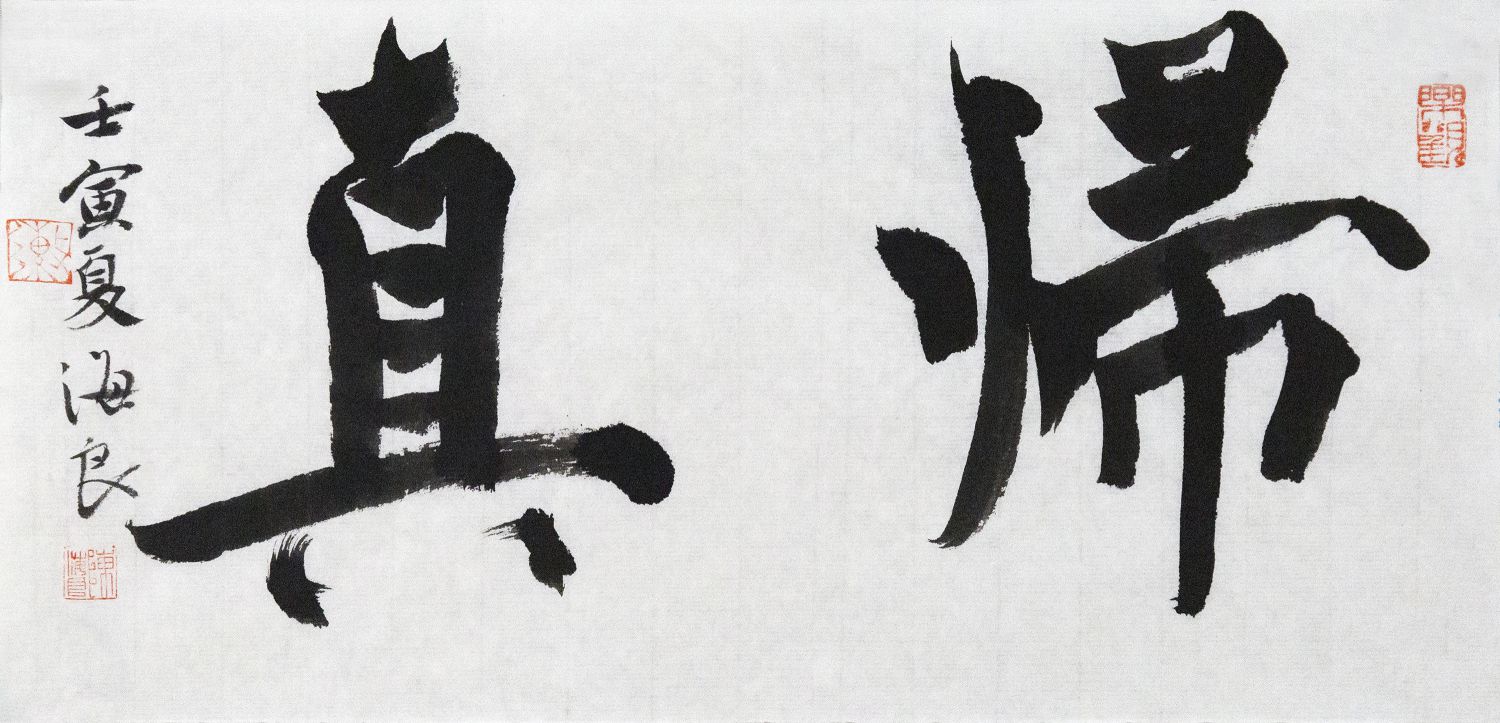 帰真
壬寅夏海良